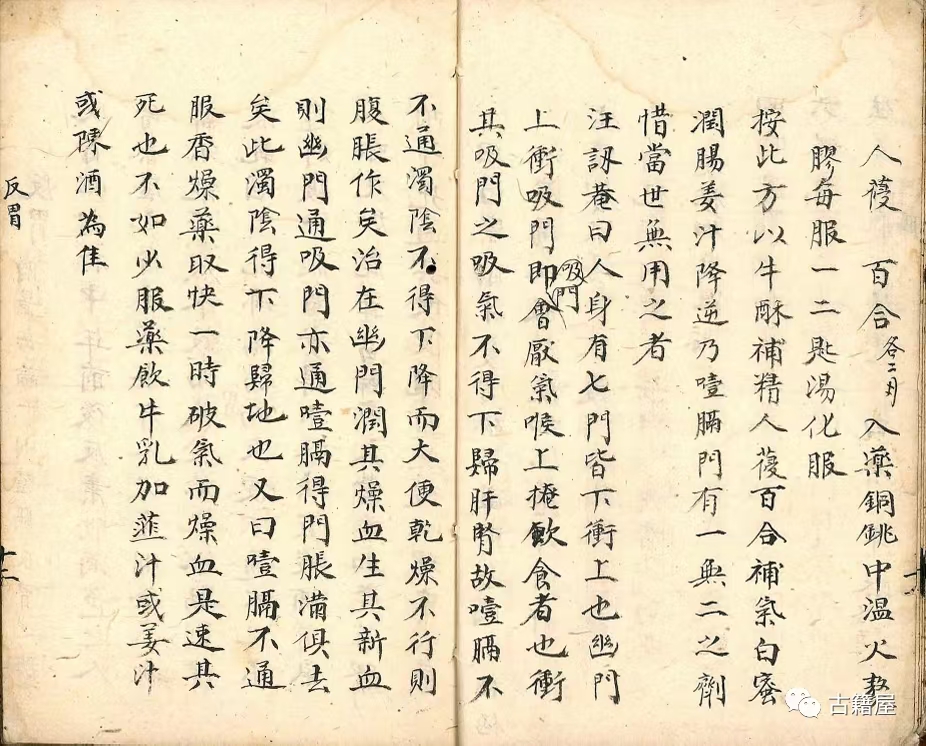 人葠 百合各二■ 入藥銅銚中温火熬
膠每服一二匙湯化服
按此方以牛酥補精人葠百合補氣白蜜
潤腸姜汁降逆乃噎膈門有一無二之劑
惜當世無用之者
汪訒菴曰人身有七門皆下衝上也幽門
上衝吸門即會厭氣喉上掩飲食者也衝
吸門
其吸門之吸氣不得下歸肝腎故噎膈不
不通濁陰不得下降而大便乾燥不行則
腹脹作矣治在幽門潤其燥血生其新血
則幽門通吸門亦通噎膈得門脹滿俱去
矣此濁陰得下降歸地也又曰噎膈不通
服香燥藥取快一時破氣而燥血是速其
死也不如少服藥飲牛乳加韮汁或姜汁
或陳酒為佳
反胃
十二
古籍屋